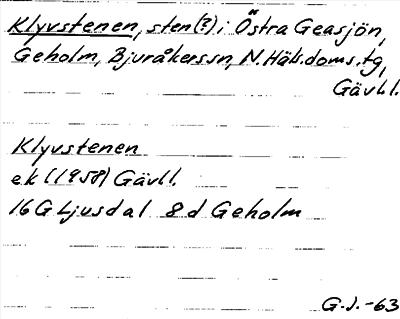 Klyvstenen, sten(?) i Östra Geasjön,
Geholm, Bjuråkerssn, N.Häls.doms.tg,
Gävll.
Klyvstenen
ek (1958) Gävll.
16G Ljusdal 8d Geholm
G.J.-63